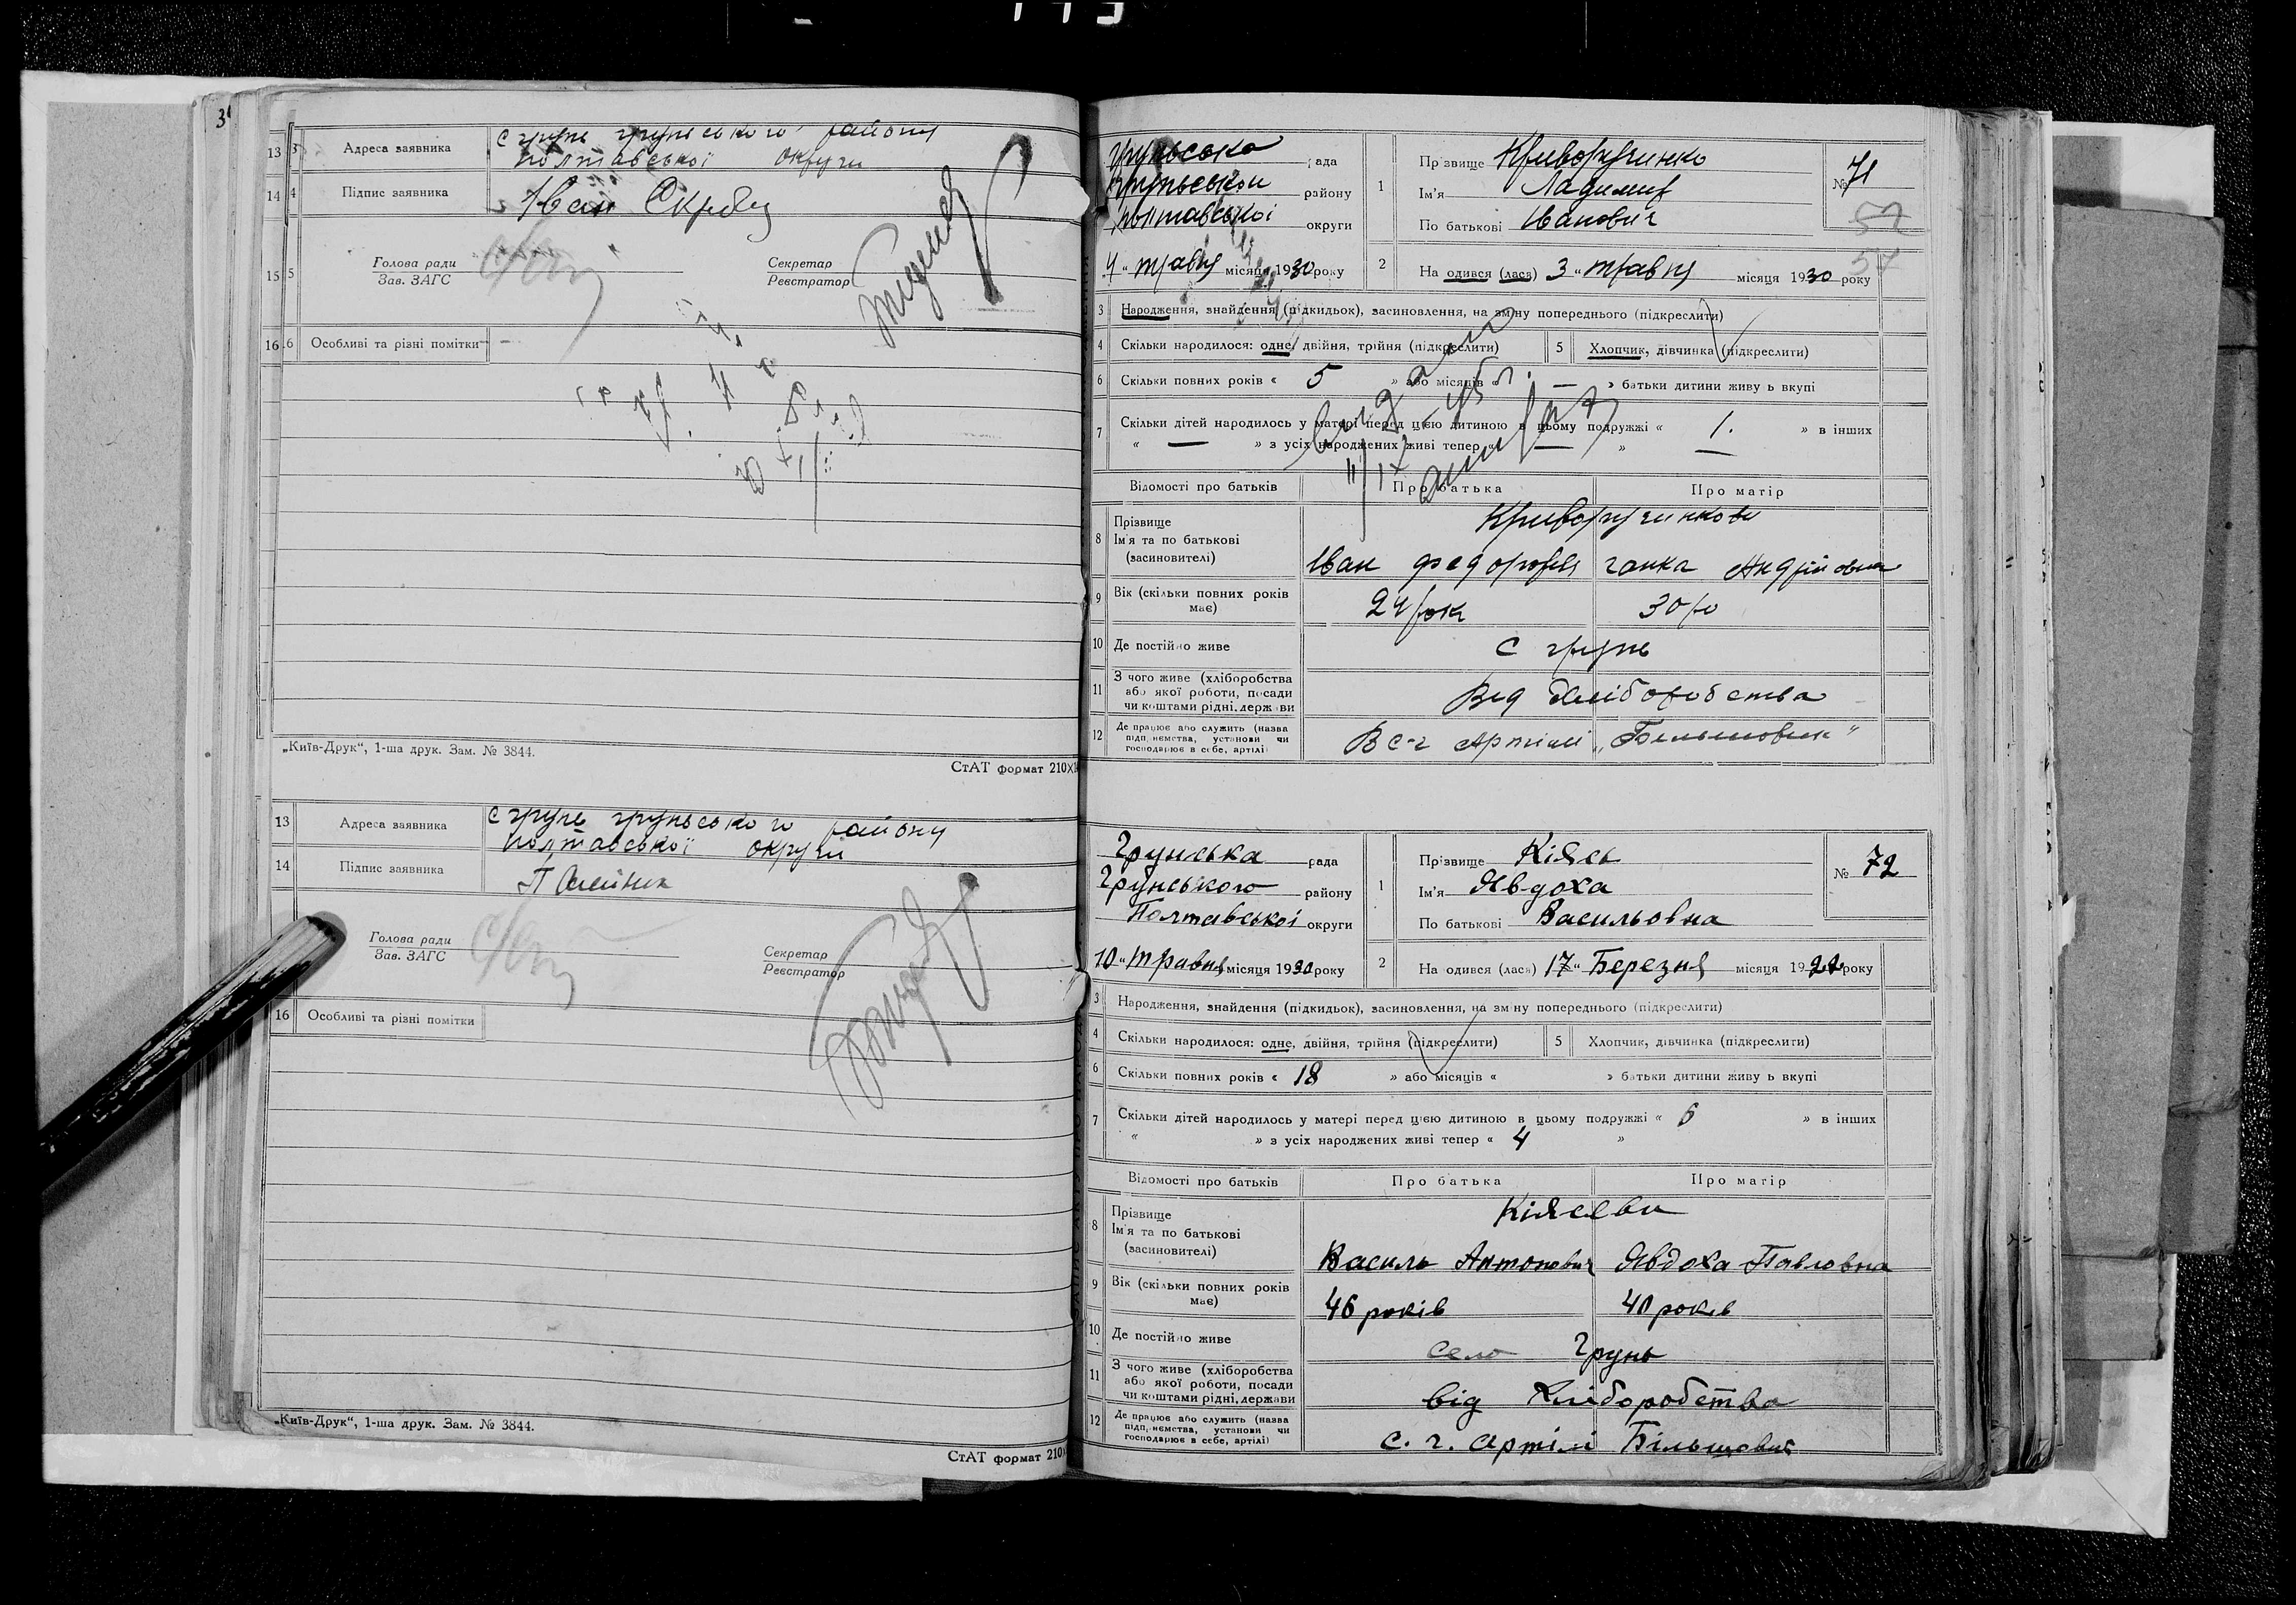 13 Адреса заявника с грунь грунського району
полтавської округи
14 Підпис заявника Іван
15 Голова ради
Зав. ЗАГС
Секретар
Реєстратор
16 Особливі та різні помітки
„Київ-Друк“, 1-ша друк. Зам. № 3844.
СтАТ формат 210
13 Адреса заявника с грунь грунського району
полтавської округи
14 Підпис заявника П Олейник
Голова ради
Зав. ЗАГС
Секретар
Реєстратор
16 Особливі та різні помітки
„Київ-Друк“, 1-ша друк. Зам. № 3844.
СтАТ формат 210
грунська рада
району
полтавської округи
4 „ травня місяця 1930 року
1 Прізвище Криворученко
Ім'я Ладимир
По батькові Іванович
№ 71
57
57
2 На одився (лась) 3 „ травня місяця 1930 року
3 Народження, знайдення (підкидьок), засиновлення, на зміну попереднього (підкреслити)
4 Скільки народилося: одне, двійня, трійня (підкреслити) 5 Хлопчик, дівчинка (підкреслити)
6 Скільки повних років « 5 » або місяців « — » батьки дитини живуть вкупі
7 Скільки дітей народилось у матері перед цією дитиною в цьому подружжі « 1. » в інших
« — » з усіх народжених живі тепер « — »
Відомості про батьків Про батька Про матір
8 Прізвище
Ім'я та по батькові
(засиновителі)
Криворученкови
Іван Федорович Ганка Андрійовна
9 Вік (скільки повних років має) 24 рок 30 ро
10 Де постійно живе с грунь
11 З чого живе (хліборобства
або якої роботи, посади
чи коштами рідні, держави
Від Хліборобства
12 Де працює або служить (назва
підприємства, установи чи
господарює в себе, артілі)
В с-г Артілі „Большовик“
Грунська рада
Грунського району
Полтавської округи
10 „ Травня місяця 1930 року
1 Прізвище Кіяєь
Ім'я Явдоха
По батькові Васильовна
№ 72
2 На одився (лась) 17 „ Березня місяця 1922 року
3 Народження, знайдення (підкидьок), засиновлення, на зміну попереднього (підкреслити)
4 Скільки народилося: одне, двійня, трійня (підкреслити) 5 Хлопчик, дівчинка (підкреслити)
6 Скільки повних років « 18 » або місяців « » батьки дитини живуть вкупі
7 Скільки дітей народилось у матері перед цією дитиною в цьому подружжі « 6 » в інших
« » з усіх народжених живі тепер « 4 »
Відомості про батьків Про батька Про матір
8 Прізвище
Ім'я та по батькові
(засиновителі)
Кіяєви
Василь Антонович Явдоха Павловна
9 Вік (скільки повних років має) 46 років 40 років
10 Де постійно живе село Грунь
11 З чого живе (хліборобства
або якої роботи, посади
чи коштами рідні, держави
від Хліборобства
12 Де працює або служить (назва
підприємства, установи чи
господарює в себе, артілі)
С. г. Артілі Більшовик